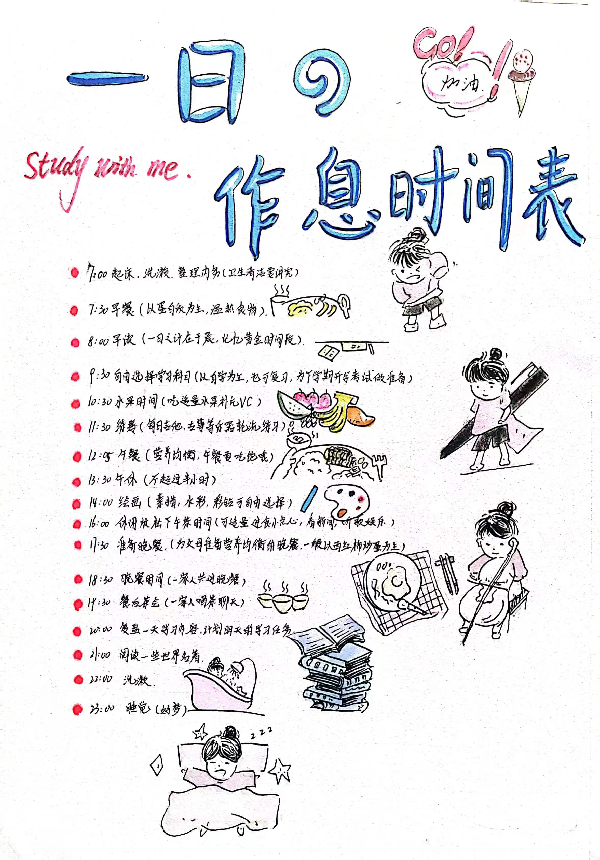 GO!
加油
一日の
Study with me.
作息时间表
7:00 起床、洗漱、整理内务(卫生清洁要讲究)
7:30 早餐(以蛋白质为主,温热食物)
8:00 早读(一日之计在于晨,记忆黄金时间段)
9:30 自由选择学习科目(以自学为主,也可复习,为下学期开学考试做准备)
10:30 水果时间(吃适量水果补充VC)
11:30 练琴(每日吉他、古筝等乐器轮流练习)
12:05 午餐(营养均衡,午餐要吃饱哦)
13:30 午休(不超过半小时)
14:00 绘画(素描,水彩,彩铅可自由选择)
16:00 休闲放松下午茶时间(可适量进食小点心,看新闻,听歌娱乐)
17:30 准备晚餐(为父母准备营养均衡的晚餐,一般以西红柿炒蛋为主)
18:30 晚餐时间(一家人共进晚餐)
19:30 餐后茶会(一家人喝茶聊天)
20:00 复盘一天学习内容,计划明天的学习任务
21:00 阅读一些世界名著
22:00 洗漱
23:00 睡觉(好梦)
z z z